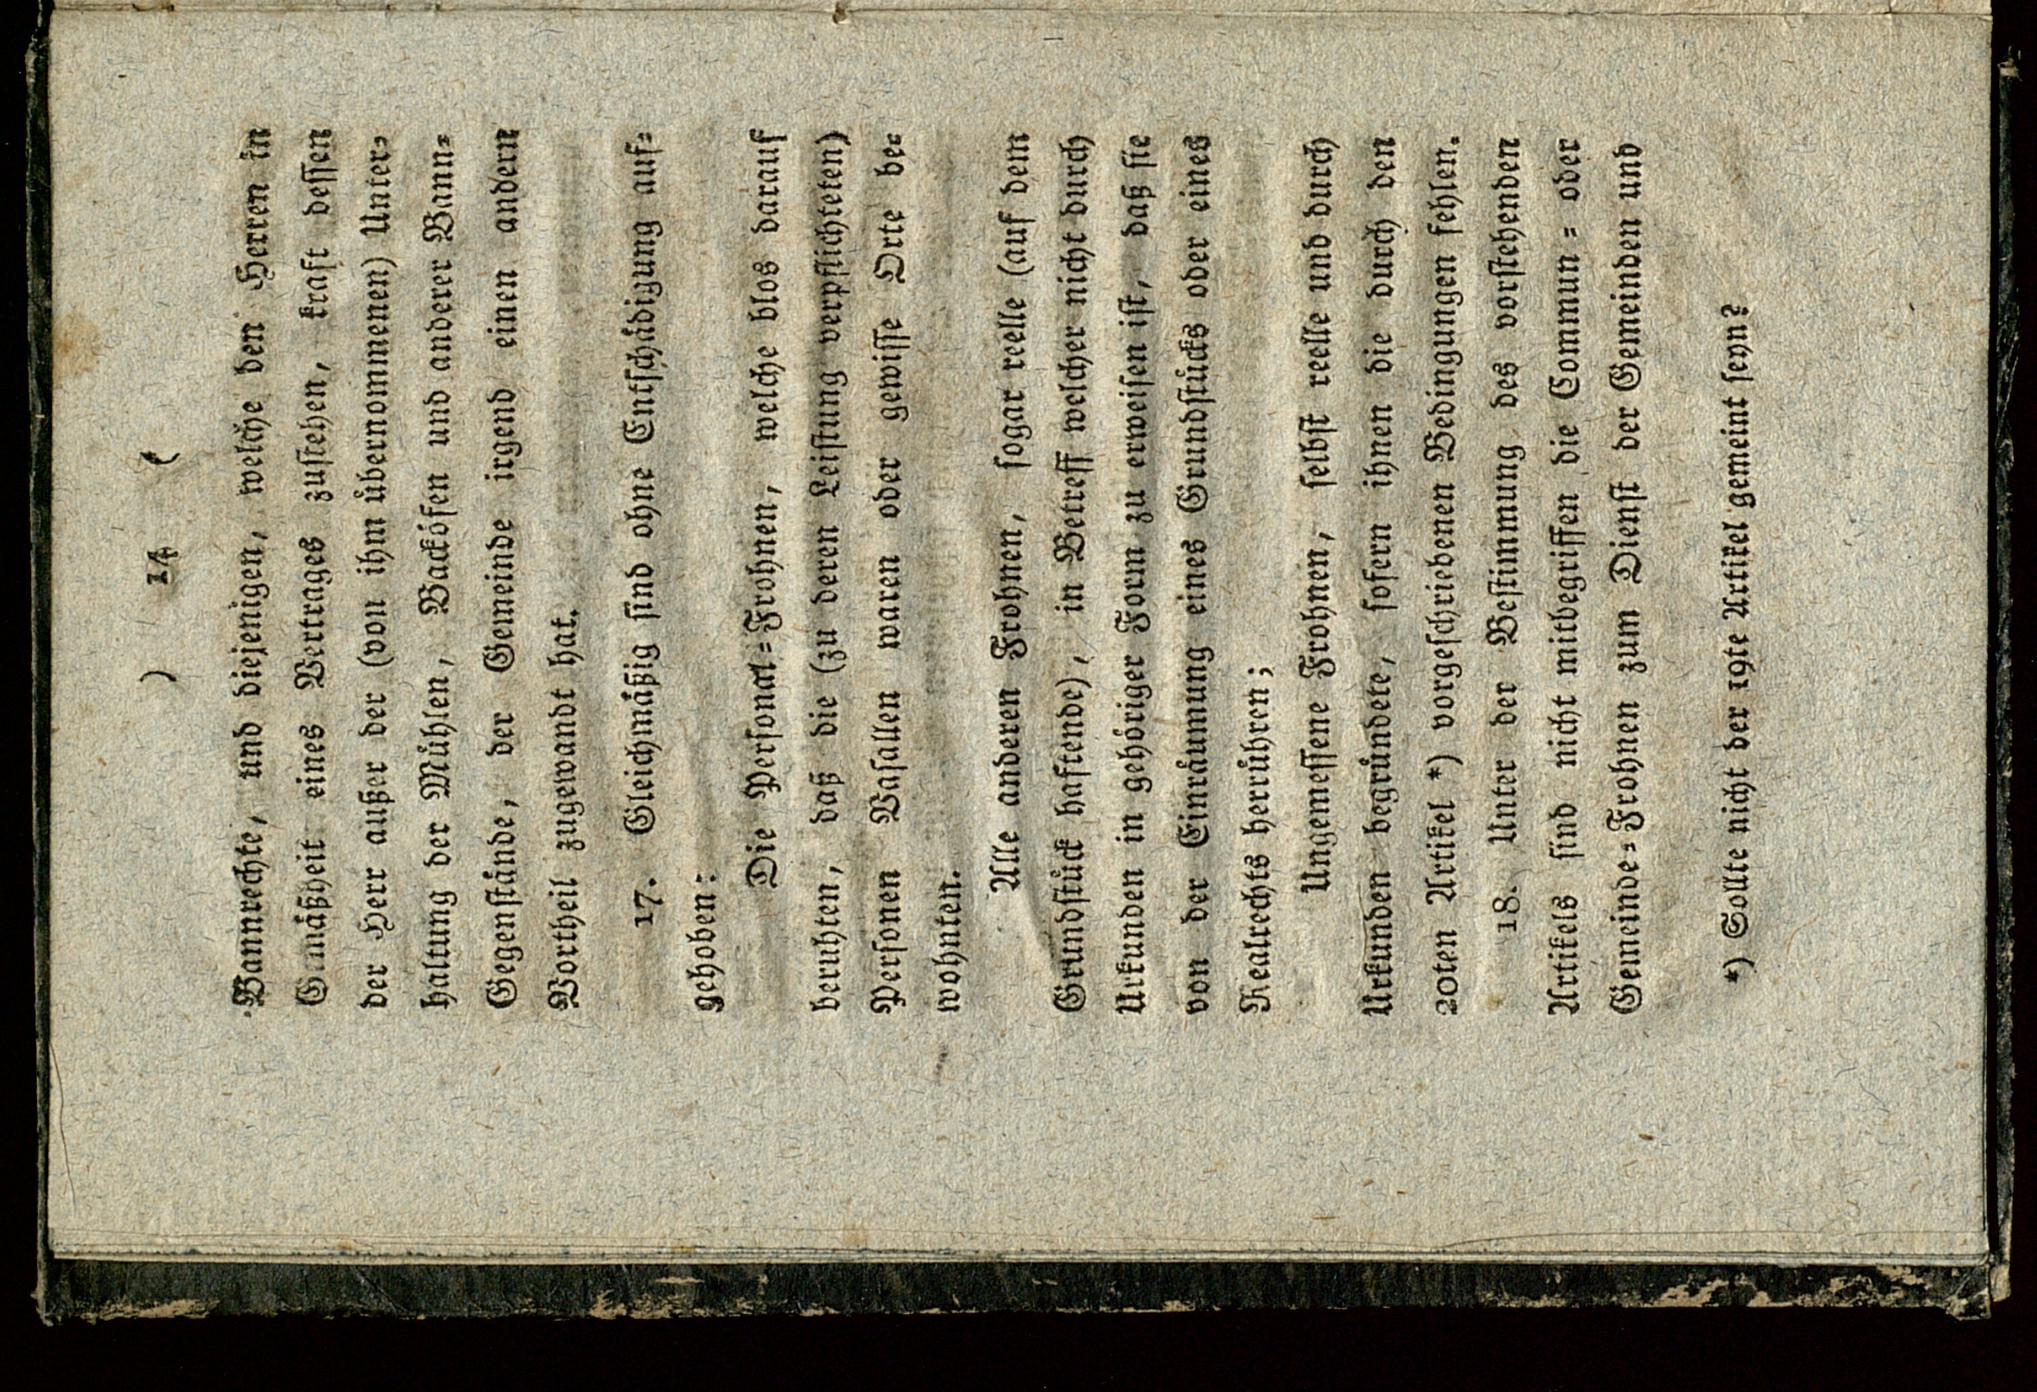 ) 14 (
Bannrechte, und diejenigen, welche den Herren in
Gemäßheit eines Vertrages zustehen, kraft dessen
der Herr außer der (von ihm übernommenen) Unter-
haltung der Mühlen, Backöfen und anderer Bann-
Gegenstände, der Gemeinde irgend einen andern
Vortheil zugewandt hat.
17. Gleichmäßig sind ohne Entschädigung auf-
gehoben:
Die Personal-Frohnen, welche blos darauf
beruhten, daß die (zu deren Leistung verpflichteten)
Personen Vasallen waren oder gewisse Orte be-
wohnten.
Alle anderen Frohnen, sogar reelle (auf dem
Grundstück haftende), in Betreff welcher nicht durch
Urkunden in gehöriger Form zu erweisen ist, daß sie
von der Einräumung eines Grundstücks oder eines
Realrechts herrühren;
Ungemessene Frohnen, selbst reelle und durch
Urkunden begründete, sofern ihnen die durch den
20ten Artikel *) vorgeschriebenen Bedingungen fehlen.
18. Unter der Bestimmung des vorstehenden
Artikels sind nicht mitbegriffen die Commun- oder
Gemeinde-Frohnen zum Dienst der Gemeinden und
*) Sollte nicht der 19te Artikel gemeint seyn?